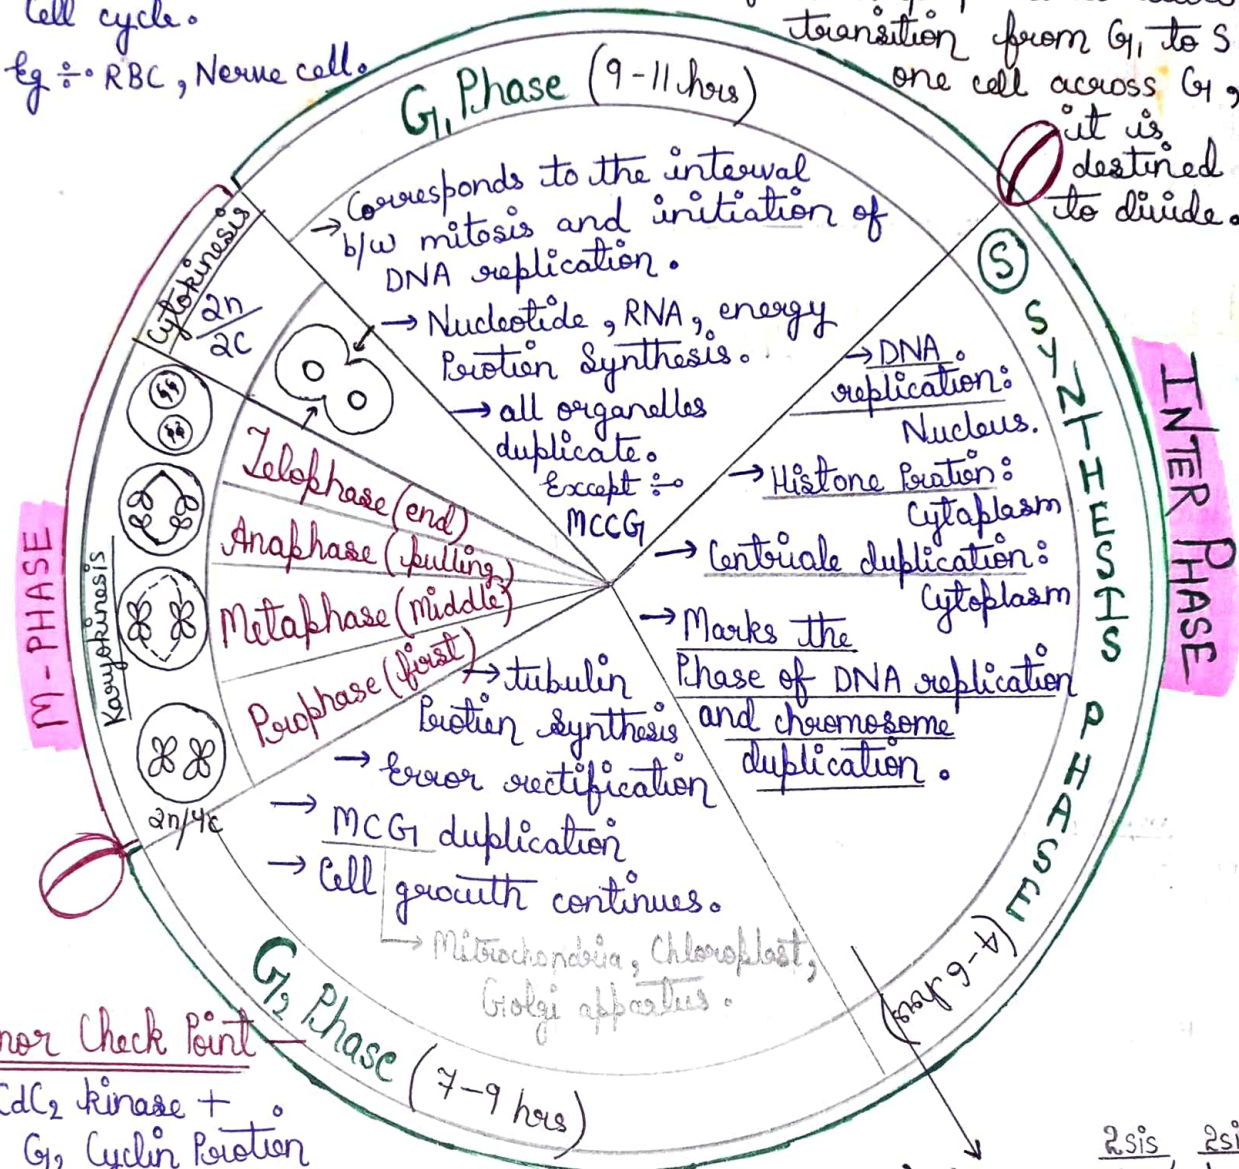 Cell cycle.
Eg ÷• RBC, Nerve cell.
transition from G1 to S
one cell across G1,
it is
destined
to divide.
G1 Phase (9-11 hrs)
→ Corresponds to the interval
b/w mitosis and initiation of
DNA replication.
→ Nucleotide, RNA, energy
Protien Synthesis.
→ all organelles
duplicate.
Except ÷•
MCCG
S
SYNTHESIS PHASE
(4-6 hrs)
INTER PHASE
→ DNA
replication:
Nucleus.
→ Histone Protien:
Cytaplasm
→ Centriale duplication:
Cytoplasm
→ Marks the
Phase of DNA replication
and chromosome
duplication.
Cytokinesis
2n/2C
Telophase (end)
Anaphase (pulling)
Metaphase (middle)
Prophase (first)
Karyokinesis
M-PHASE
2n/4c
→ tubulin
Protien synthesis
→ Error rectification
→ MCG duplication
→ Cell growth continues.
→ Mitrochondria, Chloroplast,
Golgi appartus.
G2 Phase (7-9 hrs)
Check Point
CdC2 kinase +
G2 Cyclin Protien
2sis